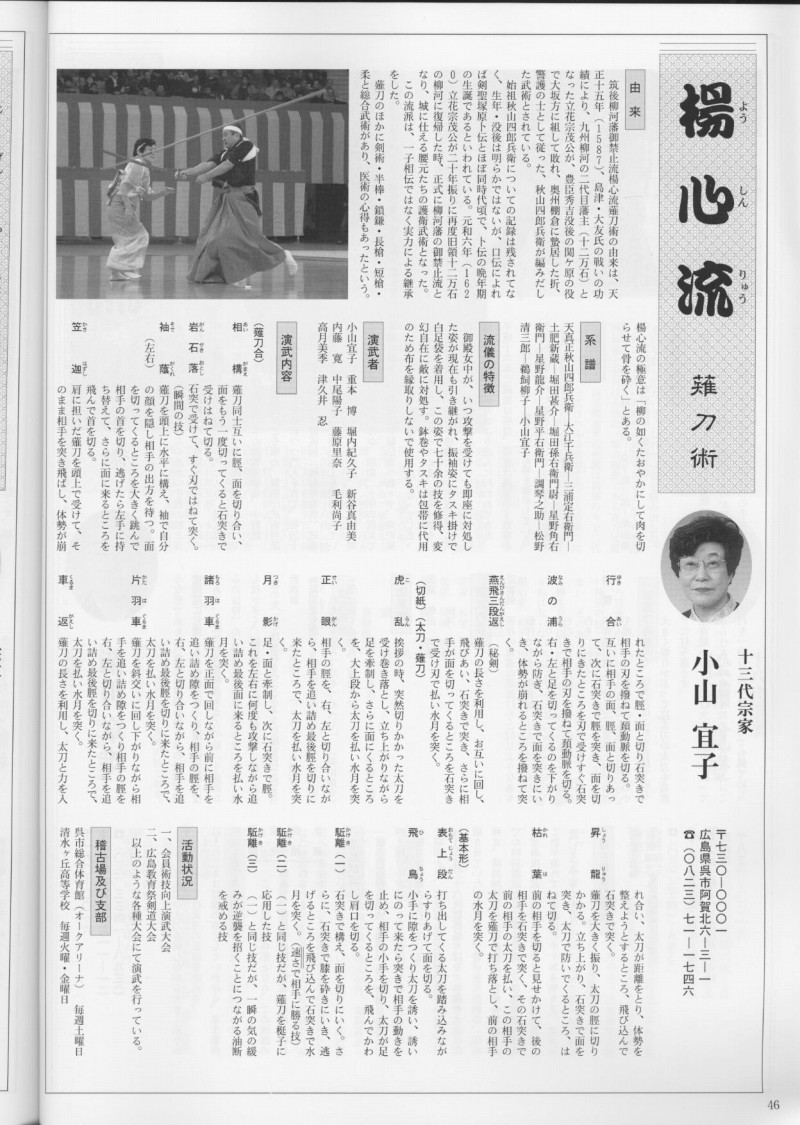 楊心流
よう しん りゅう
薙刀術
十三代宗家
小山 宜子
〒七三〇―〇〇〇一
広島県呉市阿賀北六―三―一
☎(〇八二三)七一―一七四六
楊心流の極意は「柳の如くたおやかにして肉を切
らせて骨を砕く」とある。
由来
筑後柳河藩御禁止流楊心流薙刀術の由来は、天
正十五年(1587)、島津・大友氏の戦いの功
績により、九州柳河の二代目藩主(十二万石)と
なった立花宗茂公が、豊臣秀吉没後の関ヶ原の役
で大坂方に組して敗れ、奥州棚倉に蟄居した折、
警護の士として従った、秋山四郎兵衛が編みだし
た武術とされている。
始祖秋山四郎兵衛についての記録は残されてな
く、生年・没後は明らかではないが、口伝によれ
ば剣聖塚原卜伝とほぼ同時代頃で、卜伝の晩年期
の生誕であるといわれている。元和六年(162
0)立花宗茂公が二十年振りに再度旧領十二万石
の柳河に復帰した時、正式に柳河藩の御禁止流と
なり、城に仕える腰元たちの護衛武術となった。
この流派は、一子相伝ではなく実力による継承
をした。
薙刀のほかに剣術・半棒・鎖鎌・長槍・短槍・
柔と総合武術があり、医術の心得もあったという。
系譜
天真正秋山四郎兵衛―大江千兵衛―三浦定右衛門―
土肥新蔵―堀田甚介―堀田孫右衛門尉―星野角右
衛門―星野龍介―星野平右衛門―調琴之助―松野
清三郎―鵜飼柳子―小山宜子
流儀の特徴
御殿女中が、いつ攻撃を受けても即座に対処し
た姿が現在も引き継がれ、振袖姿にタスキ掛けで
白足袋を着用し、この姿で七十余の技を修得、変
幻自在に敵に対処す。鉢巻やタスキは包帯に代用
のため布を縁取りしないで使用する。
演武者
小山宜子 重本 博 堀内紀久子 新谷真由美
内藤 寛 中尾陽子 藤原里奈 毛利尚子
高月美季 津久井 忍
演武内容
(薙刀合)
相構 あい がまえ
薙刀同士互いに脛、面を切り合い、
面をもう一度切ってくると石突きで
受けはねて切る。
岩石落 がん せき おとし
石突で受けて、すぐ刃ではねて突く。
(瞬間の技)
袖蔭 そで がくれ
(左右)
薙刀を頭上に水平に構え、袖で自分
の顔を隠し相手の出方を待つ。面
を切ってくるところを大きく跳んで
相手の首を切り、逃げたら左手に持
ち替えて、さらに面に来るところを
飛んで首を切る。
笠迦 かさ はずし
肩に担いだ薙刀を頭上で受けて、そ
のまま相手を突き飛ばし、体勢が崩
れたところで脛・面と切り石突きで
相手の刃を撥ねて頚動脈を切る。
行合 ゆき あい
互いに相手の面、脛、面と切りあっ
て、次に石突きで脛を突き、面を切
りにきたところを刃で受けすぐ石突
きで相手の刃を撥ねて頚動脈を切る。
波の浦 なみ の うら
右・左と足を切ってくるのを下がり
ながら防ぎ、石突きで面を突きにい
き、体勢が崩れるところを撥ねて突
く。
燕飛三段返 えんぴさんだんがえし
(秘剣)
薙刀の長さを利用し、お互いに回し、
飛びあい、石突きで突き、さらに相
手が面を切ってくるところを石突き
で受け刀で払い水月を突く。
(切紙)(太刀・薙刀)
虎乱 こ らん
挨拶の時、突然切りかかった太刀を
受け巻き落とし、立ち上がりながら
足を牽制し、さらに面にくるところ
を、大上段から太刀を払い水月を突
く。
正眼 せい がん
相手の脛を、右、左と切り合いなが
ら、相手を追い詰め最後脛を切りに
来たところで、太刀を払い水月を突
く。
月影 つき かげ
足・面と牽制し、次に石突きで脛。
これを左右に何度も攻撃しながら追
い詰め最後面に来るところを払い水
月を突く。
諸羽車 もろ は ぐるま
薙刀を正面で回しながら前に相手を
追い詰め隙をつくり、相手の脛を、
右、左と切り合いながら、相手を追
い詰め最後脛を切りに来たところで、
太刀を払い水月を突く。
片羽車 かた は ぐるま
薙刀を斜交いに回し下がりながら相
手を追い詰め隙をつくり相手の脛を
右、左と切り合いながら、相手を追
い詰め最後脛を切りに来たところで、
太刀を払い水月を突く。
車返 くるま がえし
薙刀の長さを利用し、太刀と力を入
れ合い、太刀が距離をとり、体勢を
整えようとするところ、飛び込んで
石突きで突く。
昇龍 しょう りゅう
薙刀を大きく振り、太刀の脛に切り
かかる。立ち上がり、石突きで面を
突き、太刀で防いでくるところ、は
ねて切る。
枯葉 かれ は
前の相手を切ると見せかけて、後の
相手を石突きで突く、その石突きで
前の相手の太刀を払い、この相手の
太刀を薙刀で打ち落とし、前の相手
の水月を突く。
(基本形)
表上段 おもて じょう だん
打ち出してくる太刀を踏み込みなが
らすりあげて面を切る。
飛鳥 ひ ちょう
小手に隙をつくり太刀を誘い、誘い
にのって来たら突きで相手の動きを
止め、相手の小手を切り、太刀が足
を切ってくるところを、飛んでかわ
し肩口を切る。
駈離(一) かけき
石突きで構え、面を切りにいく。さ
らに、石突きで膝を砕きにいき、逃
げるところを飛び込んで石突きで水
月を突く。(速さで相手に勝る技)
駈離(二) かけき
(一)と同じ技だが、薙刀を梃子に
応用した技
駈離(三) かけき
(一)と同じ技だが、一瞬の気の緩
みが逆襲を招くことにつながる油断
を戒める技
活動状況
一、会員術技向上演武大会
二、広島教育祭剣道大会
以上のような各種大会にて演武を行っている。
稽古場及び支部
呉市総合体育館(オークアリーナ) 毎週土曜日
清水ヶ丘高等学校 毎週火曜・金曜日
46